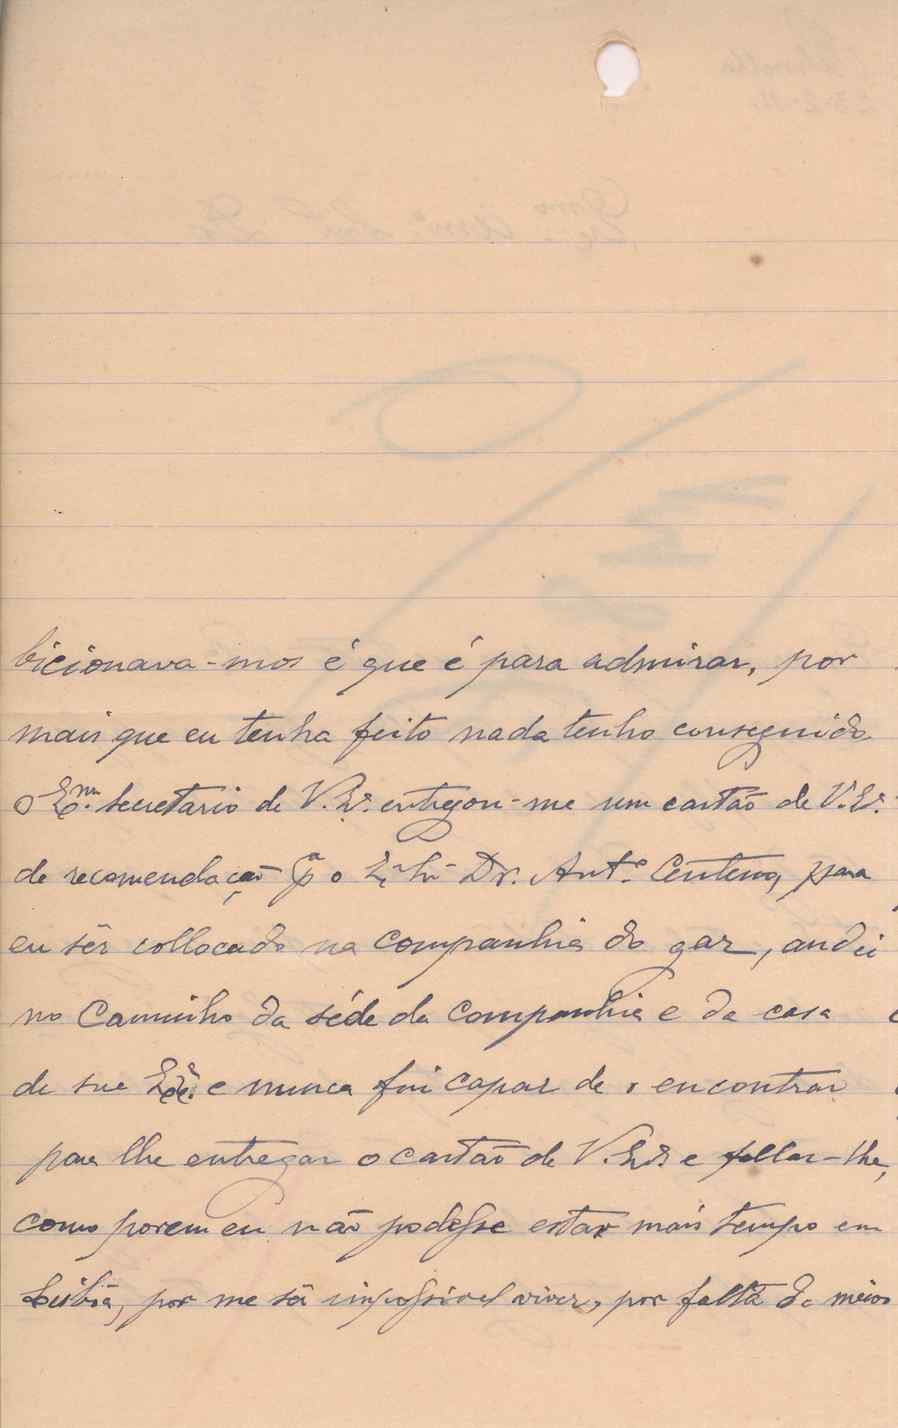 bicionava-mos é que é para admirar, por
mais que eu tenha feito nada tenho conseguido
o Exmº. Secretario de V. Exª. entregou-me um cartão de V. Exª.
de recomendação pª o Exmº Snr Dr. Antº. Centeno, para
eu sêr collocado na Companhia do gaz, andei
no Caminho da séde da Companhia e da casa
de sua Exª. e nunca fui capaz de o encontrar
para lhe entregar o cartão de V. Exª e fallar-lhe,
como porem eu não podesse estar mais tempo em
Lisbôa, por me sêr impossivel viver, por falta de meios